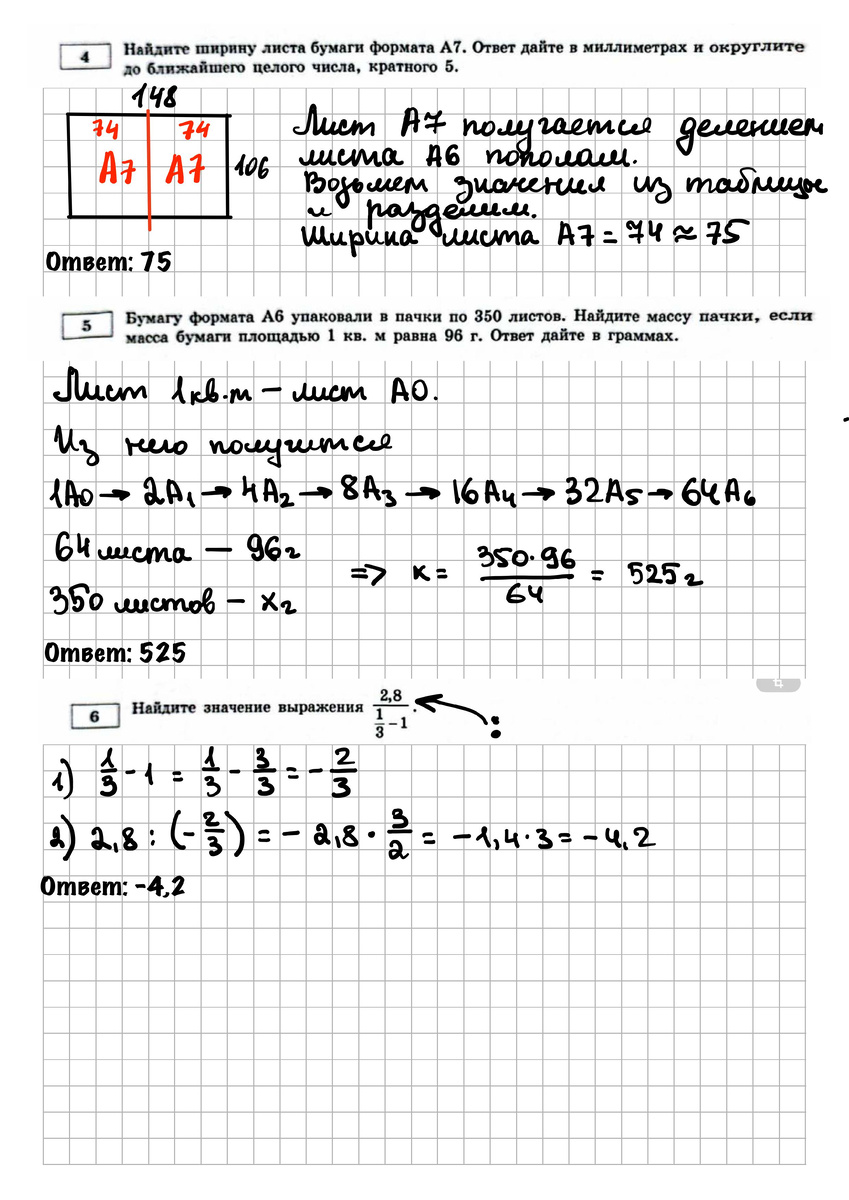 4 Найдите ширину листа бумаги формата А7. Ответ дайте в миллиметрах и округлите
до ближайшего целого числа, кратного 5.
148
74 74
А7 А7
106
Лист А7 получается делением
листа А6 пополам.
Возьмем значения из таблицы
и разделим.
Ширина листа А7 = 74 ≈ 75
Ответ: 75
5 Бумагу формата А6 упаковали в пачки по 350 листов. Найдите массу пачки, если
масса бумаги площадью 1 кв. м равна 96 г. Ответ дайте в граммах.
Лист 1кв.м – лист А0.
Из него получится
1А0 → 2А1 → 4А2 → 8А3 → 16А4 → 32А5 → 64А6
64 листа – 96г
350 листов – хг
=> х = 350·96/64 = 525г
Ответ: 525
6 Найдите значение выражения 2,8/(1/3 – 1). ← :
1) 1/3 - 1 = 1/3 - 3/3 = - 2/3
2) 2,8 : (- 2/3) = - 2,8 · 3/2 = -1,4·3 = -4,2
Ответ: -4,2